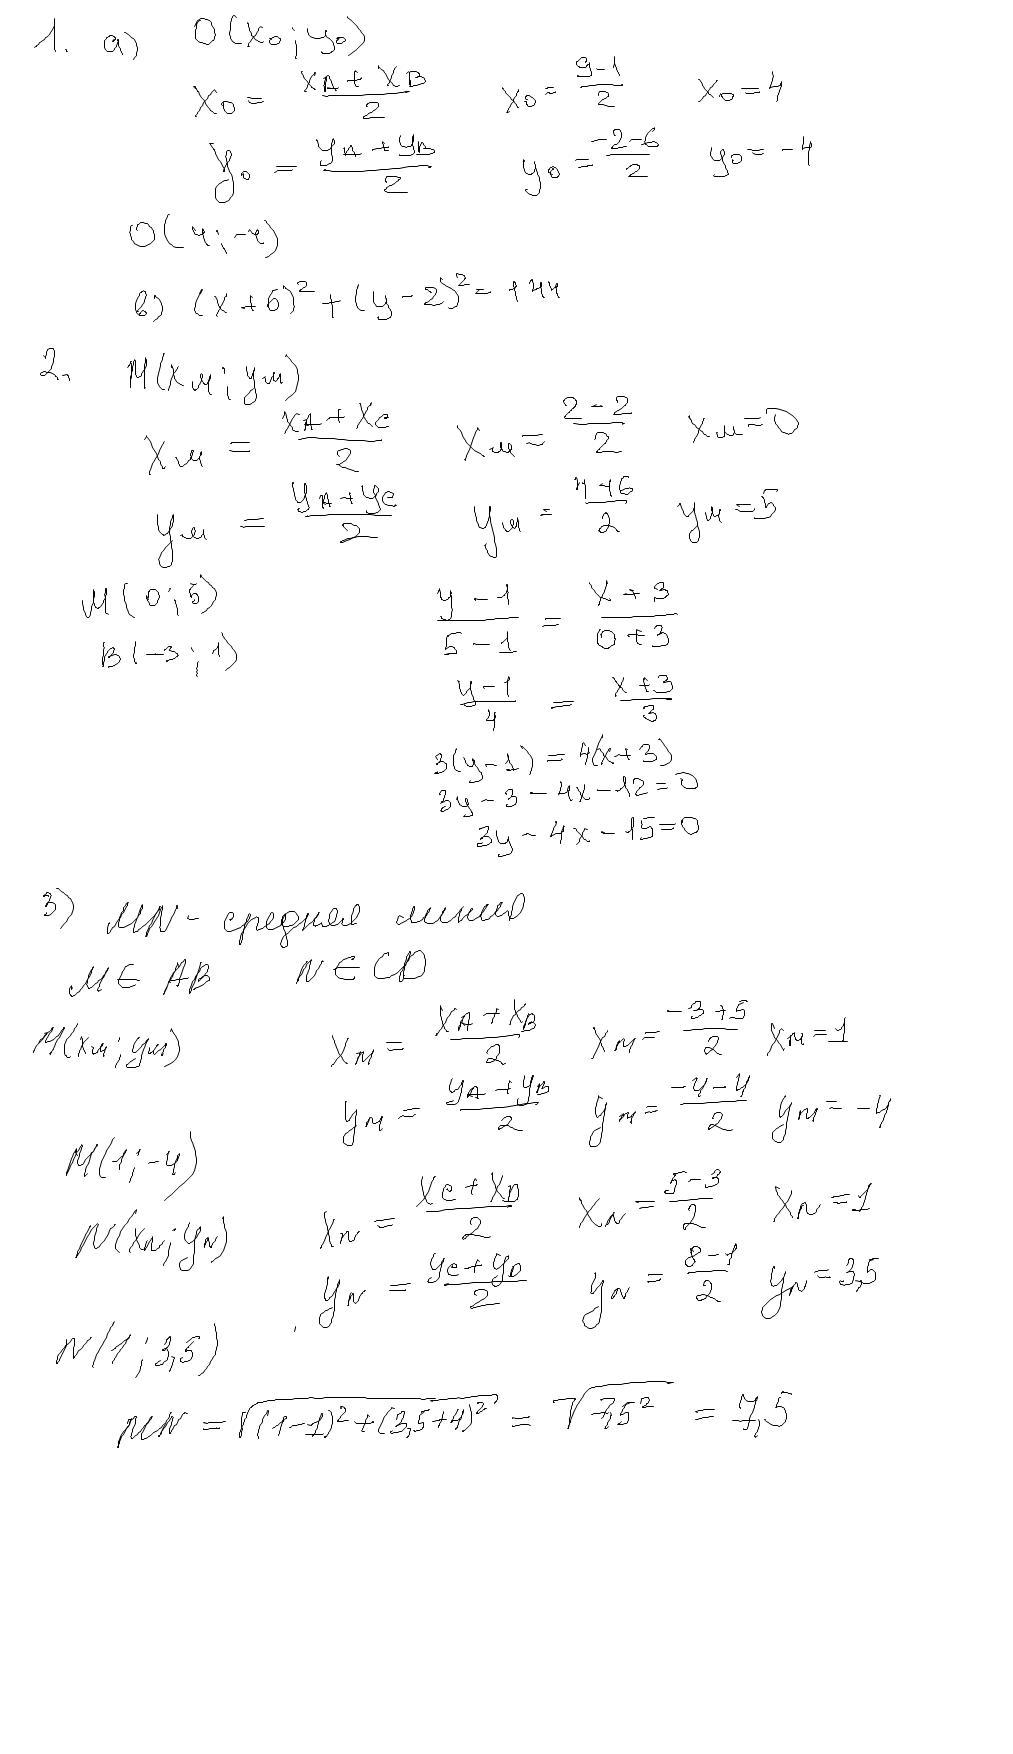 1. а) O(x₀; y₀)
x₀ = (x_A + x_B)/2   x₀ = (9-1)/2   x₀ = 4
y₀ = (y_A + y_B)/2   y₀ = (-2-6)/2   y₀ = -4
O(4; -4)
в) (x+6)² + (y-2)² = 144
2. M(x_м; y_м)
x_м = (x_A + x_C)/2   x_м = (2-2)/2   x_м = 0
y_м = (y_A + y_C)/2   y_м = (4+6)/2   y_м = 5
M(0; 5)   (y-1)/(5-1) = (x+3)/(0+3)
B(-3; 1)
(y-1)/4 = (x+3)/3
3(y-1) = 4(x+3)
3y - 3 - 4x - 12 = 0
3y - 4x - 15 = 0
3) MN - средняя линия
M ∈ AB   N ∈ CD
M(x_м; y_м)   x_M = (x_A + x_B)/2   x_M = (-3+5)/2   x_M = 1
y_M = (y_A + y_B)/2   y_M = (-4-4)/2   y_M = -4
M(1; -4)
N(x_N; y_N)   x_N = (x_C + x_D)/2   x_N = (5-3)/2   x_N = 1
y_N = (y_C + y_D)/2   y_N = (8-1)/2   y_N = 3,5
N(1; 3,5)
MN = √((1-1)² + (3,5+4)²) = √(7,5²) = 7,5